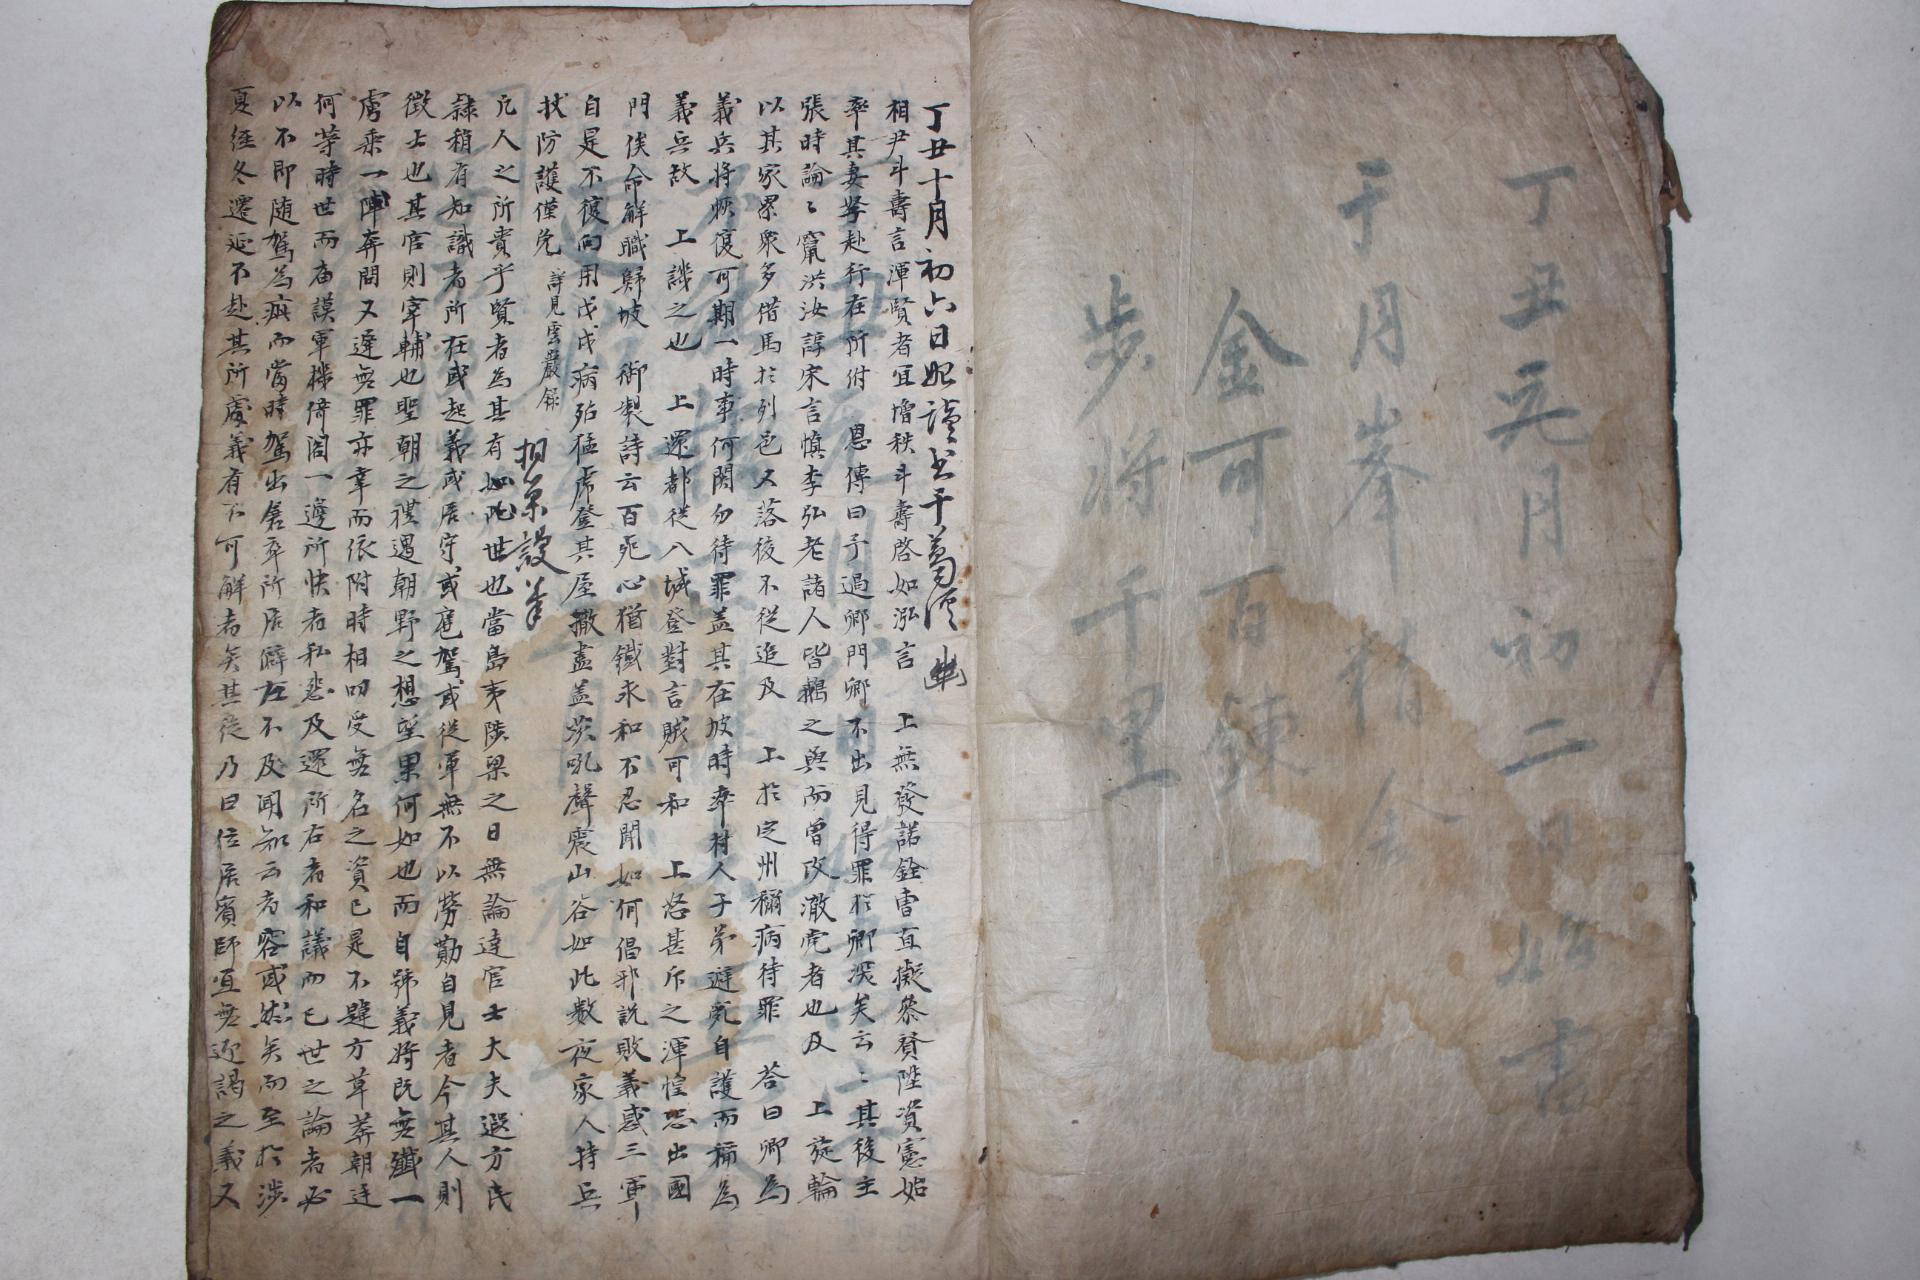 丁丑元月初二日始書
于月峯精舍
金可百鍊
步將千里
丁丑十月初六日始讀書于葛
相尹斗壽言渾賢者宜增秩斗壽啓如泓言 上無發諾銓曹直擬叅賛陞資憲始
率其妻孥赴行在所俯 恩傳曰予過卿門卿不出見得罪於卿深矣云〻其後主
張時論〻竄洪汝諄宋言愼李弘老諸人皆鵝之與而曾攻澈党者也及 上旋輪
以其家累衆多借馬於列邑又落後不從追及 上於定州稱病待罪 荅曰卿爲
義兵将恢復可期一時事何関勿待罪盖其在坡時率村人子弟避乱自護而稱爲
義兵故 上譏之也 上還都從八城登對言賊可和 上怒甚斥之渾惶恐出國
門俟命解職歸坡 御製詩云百死心猶鐵求和不忍聞如何倡邪説敗義惑三軍
自是不復向用戊戌病殆猛虎登其屋撤盡盖茨吼聲震山谷如此数夜家人持兵
杖防護僅免 詳見雲巖錄
凢人之所貴乎賢者爲其有如此世也當島夷陟梁之日無論達官士大夫遐方民
隷稍有知識者所在或起義或居守或扈駕或從軍無不以勞勤自見者今其人則
徴士也其官則宰輔也聖朝之禮遇朝野之想望果何如也而自號義将既無殱一
虜乗一陣奔問又遅無罪亦幸而依附時相叨受無名之資已是不韙方草莽朝廷
何等時世而庙謨軍機倚閣一邊所快者私悲及還所右者和議而已世之論者必
以不即随駕爲病而當時駕出倉卒所居僻左不及聞知云者容或然矣而至於涉
夏經冬遷延不赴其所處義有不可解者矣其徒乃曰位居賓師宜無迎謁之義又